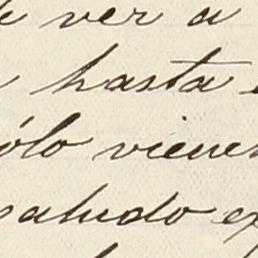 ver a
hasta
sólo vienen
saludo ex